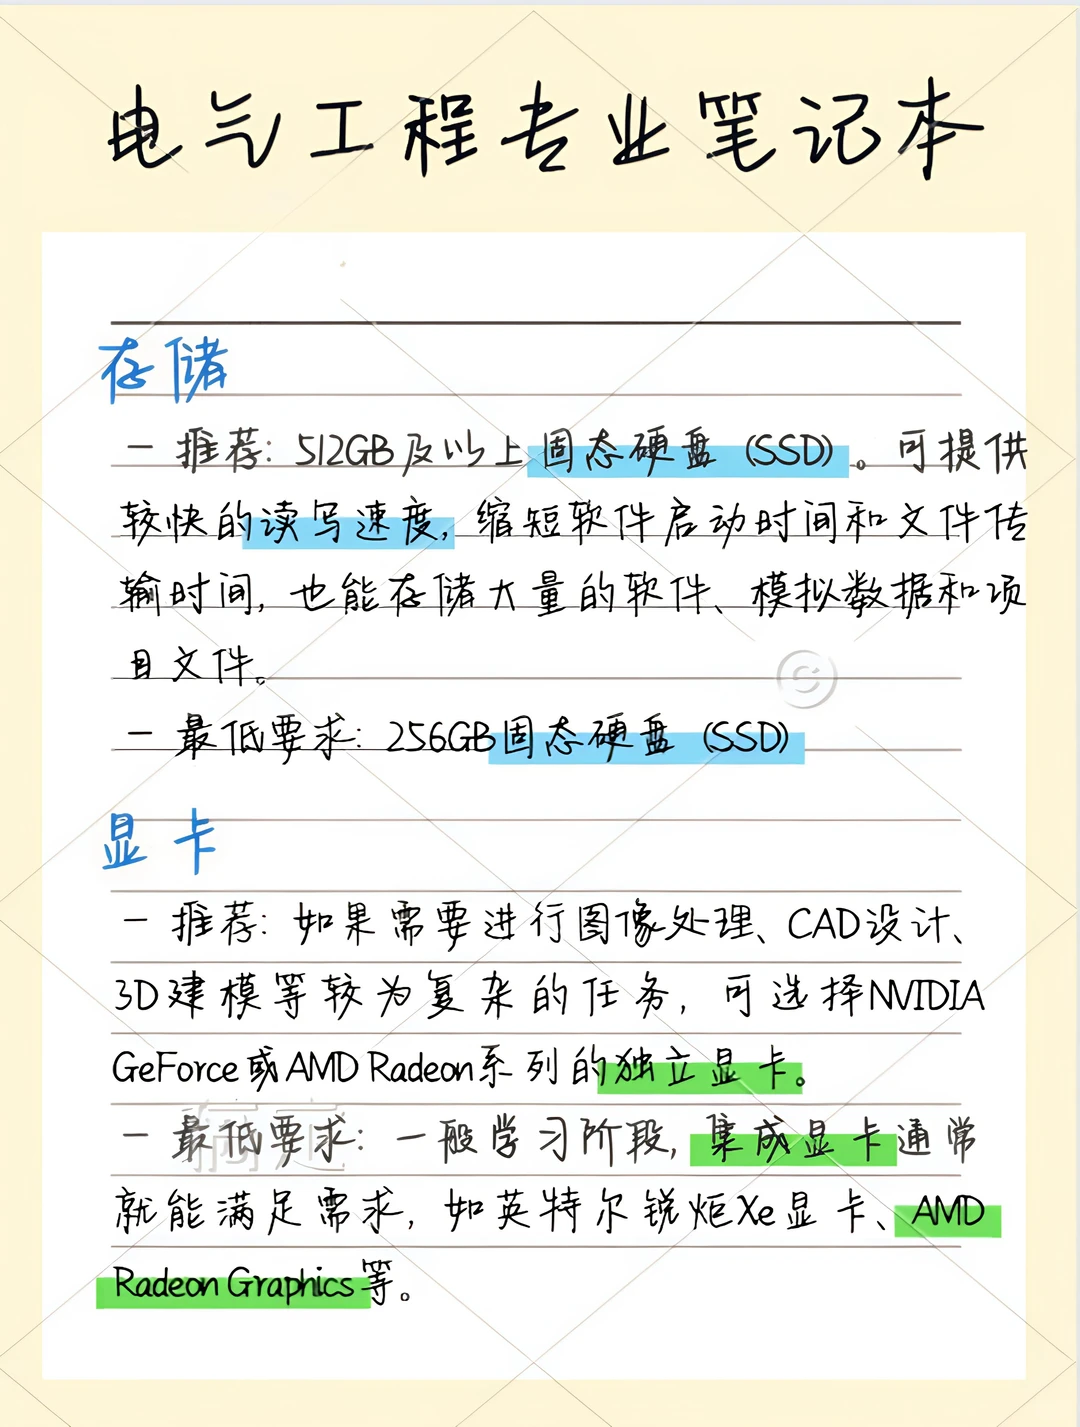 电气工程专业笔记本
存储
- 推荐：512GB及以上固态硬盘（SSD）。可提供
较快的读写速度，缩短软件启动时间和文件传
输时间，也能存储大量的软件、模拟数据和项
目文件。
- 最低要求：256GB固态硬盘（SSD）
显卡
- 推荐：如果需要进行图像处理、CAD设计、
3D建模等较为复杂的任务，可选择NVIDIA
GeForce或AMD Radeon系列的独立显卡。
- 最低要求：一般学习阶段，集成显卡通常
就能满足需求，如英特尔锐炬Xe显卡、AMD
Radeon Graphics等。